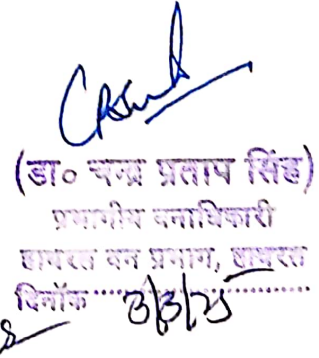 (डा० चन्द्र प्रताप सिंह)
प्रभागीय वनाधिकारी
हाथरस वन प्रभाग, हाथरस
दिनाँक 3/3/25